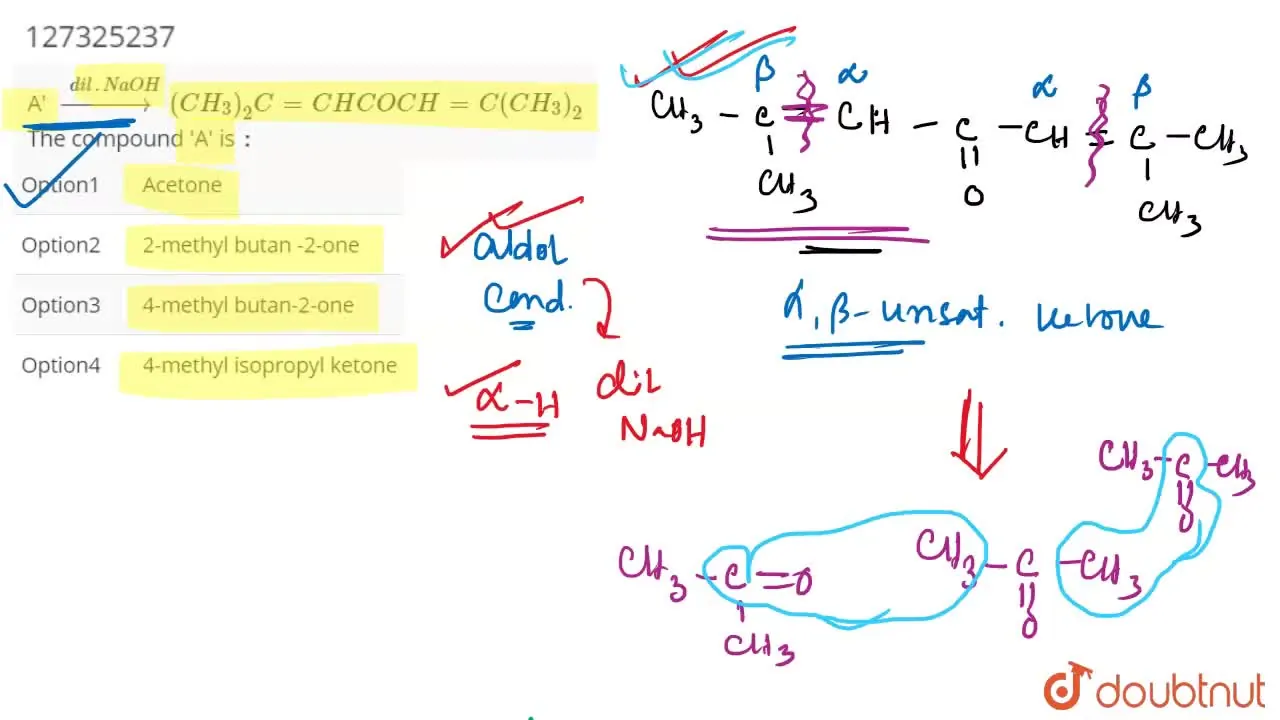 127325237
A' dil.NaOH → (CH₃)₂C = CHCOCH = C(CH₃)₂
The compound 'A' is :
Option1 Acetone
Option2 2-methyl butan -2-one
Option3 4-methyl butan-2-one
Option4 4-methyl isopropyl ketone
β α α β
CH₃ – C = CH – C – CH = C – CH₃
CH₃ O CH₃
aldol
cond.
α-H
dil
NaOH
α, β-unsat. ketone
CH₃ – C – CH₃
O
CH₃ – C = O CH₃ – C – CH₃
CH₃ O
doubtnut